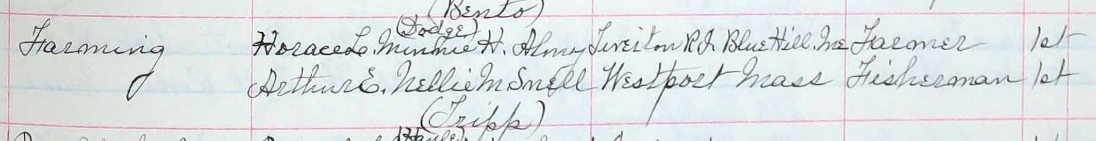 (Bento)
(Dodge)
Farming Horace L. Minnie H. Almy Tiverton R.I. Blue Hill. Me Farmer 1st
Arthur E. Nellie M Snell Westport Mass Fisherman 1st
(Tripp)